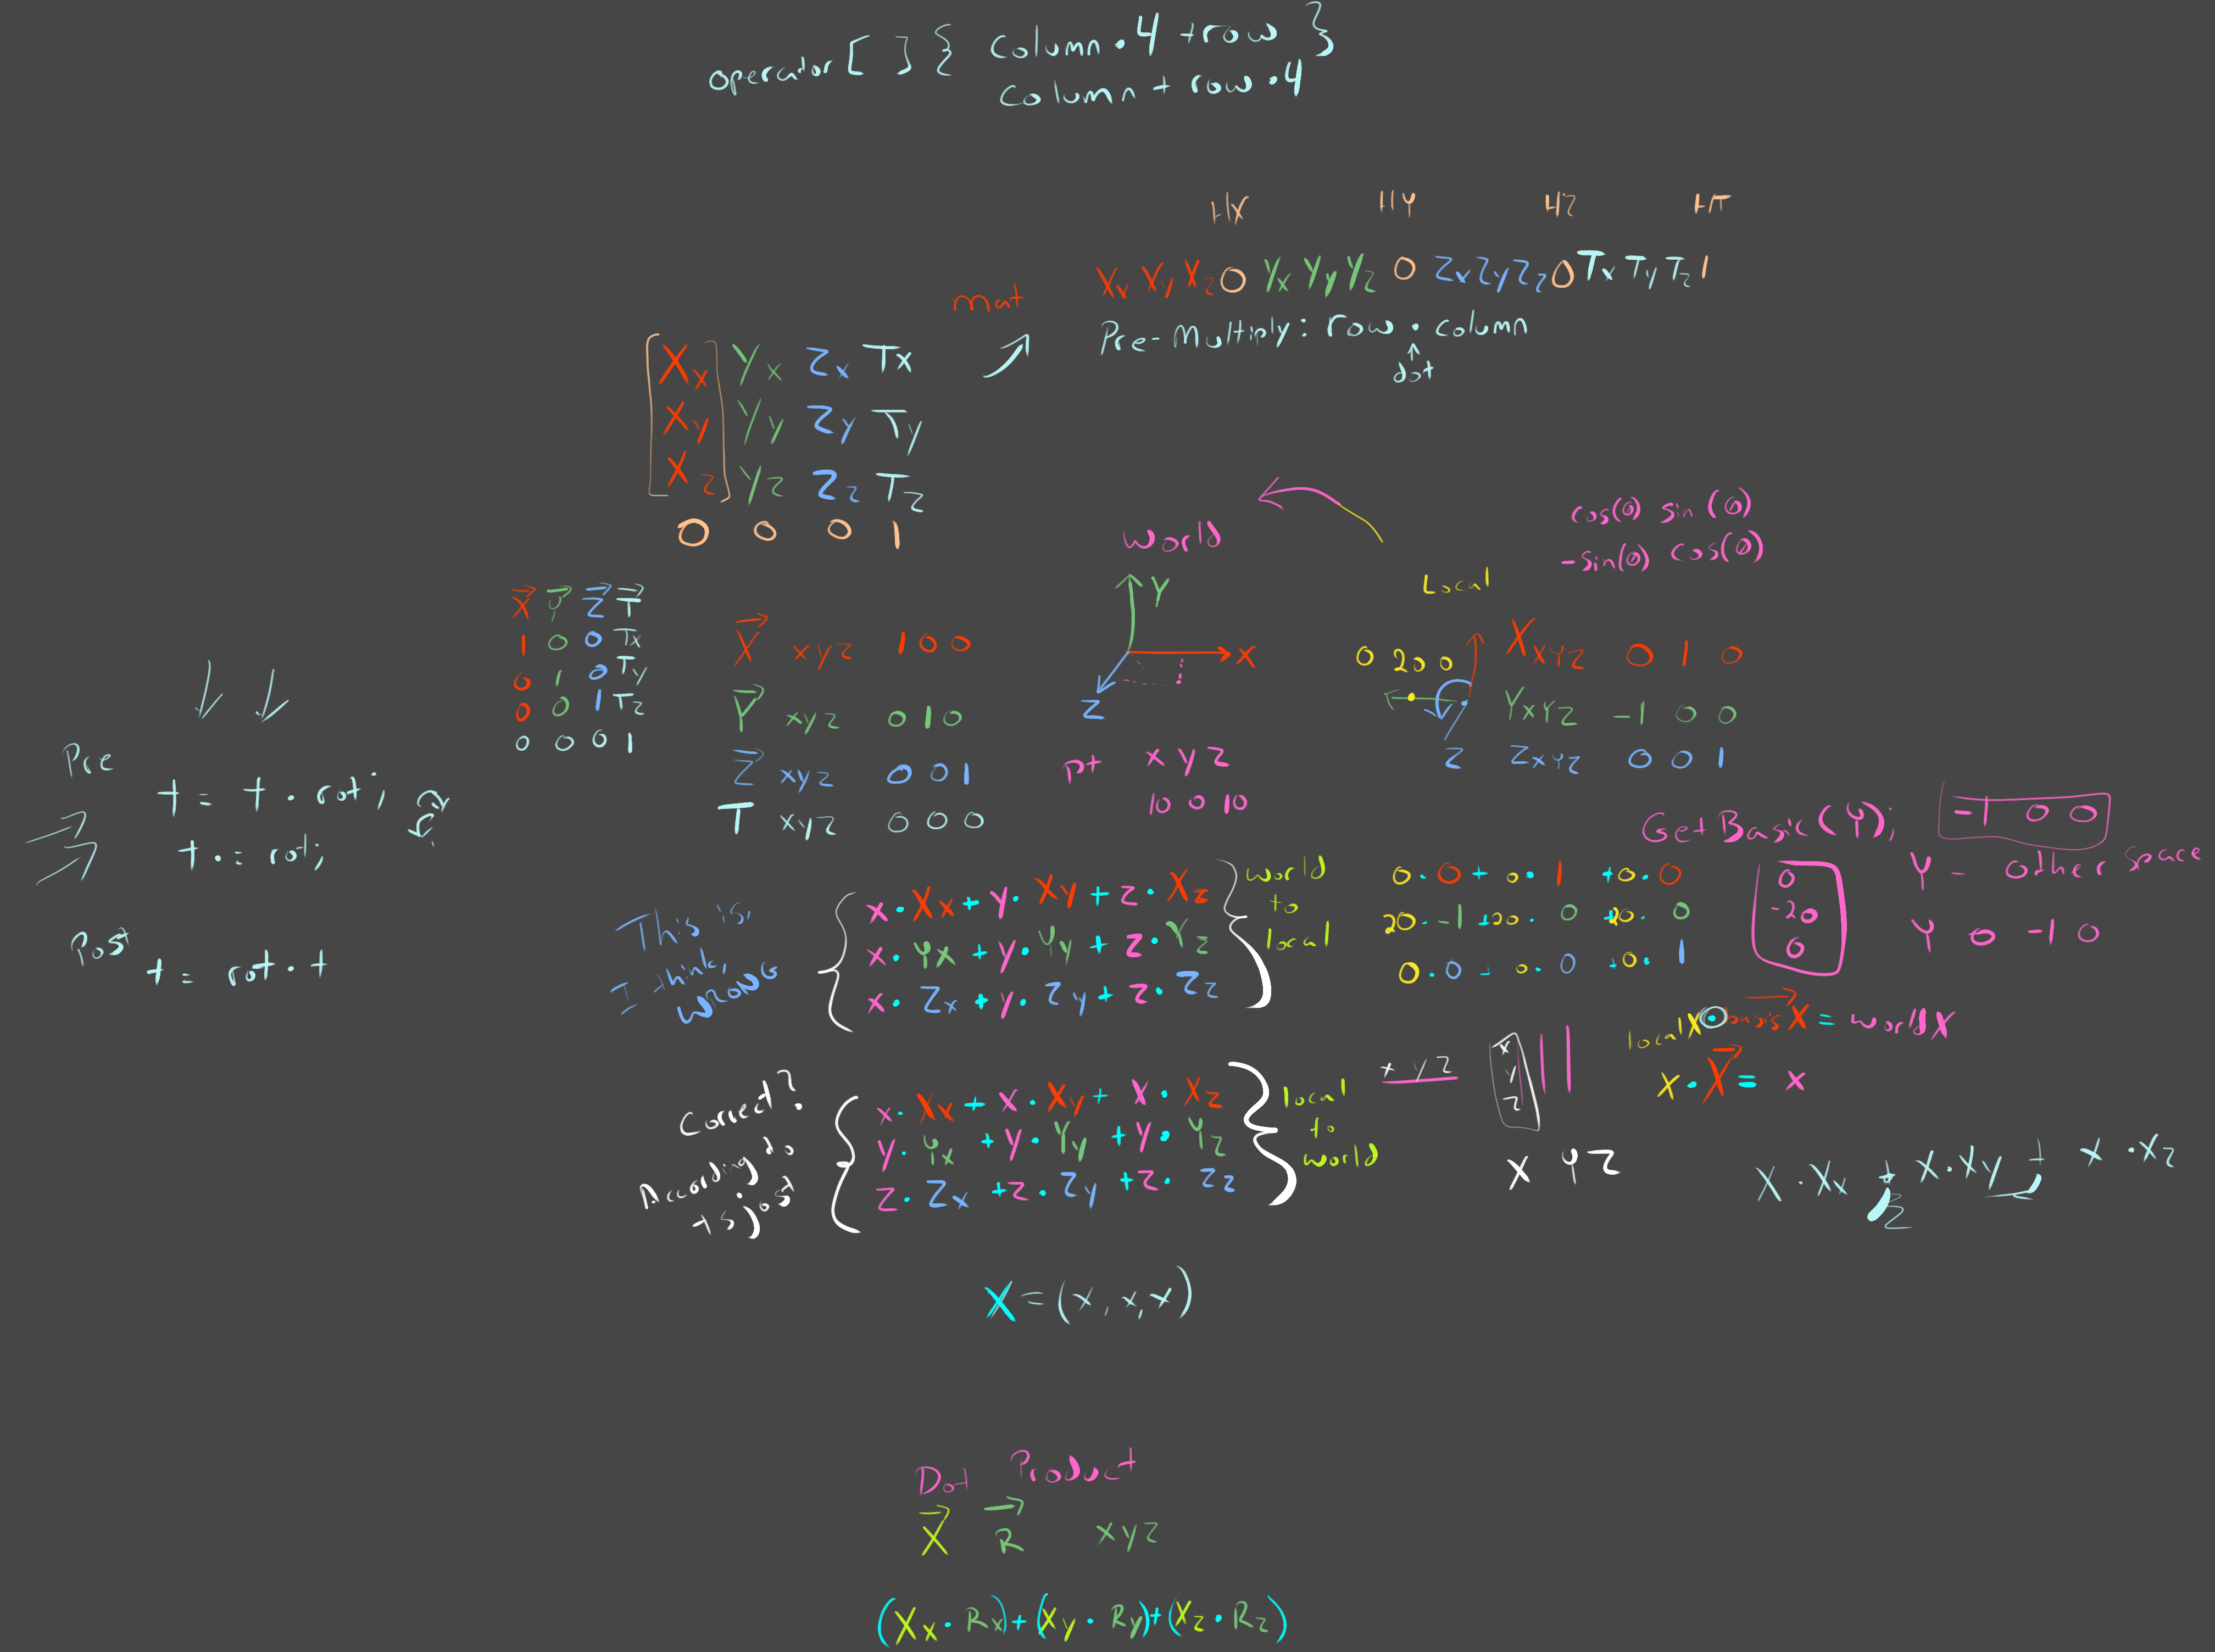 operator [ ] { column · 4 + row }
column + row · 4
HX HY HZ HT
Xx Xy Xz 0 Yx Yy Yz 0 Zx Zy Zz 0 Tx Ty Tz 1
mat
Pre-Multiply: row · column
dot
Xx Yx Zx Tx
Xy Yy Zy Ty
Xz Yz Zz Tz
0 0 0 1
cos(θ) sin(θ)
-sin(θ) cos(θ)
World
Local
X Y Z T
1 0 0 Tx
0 1 0 Ty
0 0 1 Tz
0 0 0 1
X xyz 1 0 0
Y xyz 0 1 0
Z xyz 0 0 1
T xyz 0 0 0
Y
X
Z
pt x y z
10 0 10
0 20 0
X XYZ 0 1 0
Y XYZ -1 0 0
Z
Z XYZ 0 0 1
Pre
t = t · rot;
t · = rot;
Post
t = rot · t
GetBasic(Y);
-1 0 0
0
-20
0
Y - other space
Y 0 -1 0
This is
I think
wrong
x · Xx + y · Xy + z · Xz
x · Yx + y · Yy + z · Yz
x · Zx + y · Zy + z · Zz
World
to
local
0 · 0 + 0 · 1 + 0 · 0
20 · -1 + 20 · 0 + 20 · 0
0 · 0 + 0 · 0 + 0 · 1
local X · basis X = world X
x · X = x
Correct?
According to
x · Xx + x · Xy + x · Xz
y · Yx + y · Yy + y · Yz
z · Zx + z · Zy + z · Zz
local
to
world
x y z
x
y
z
X Y Z
X · Xx + X · Xy + X · Xz
X = (x, x, x)
Dot Product
X R xyz
(Xx · Rx) + (Xy · Ry) + (Xz · Rz)